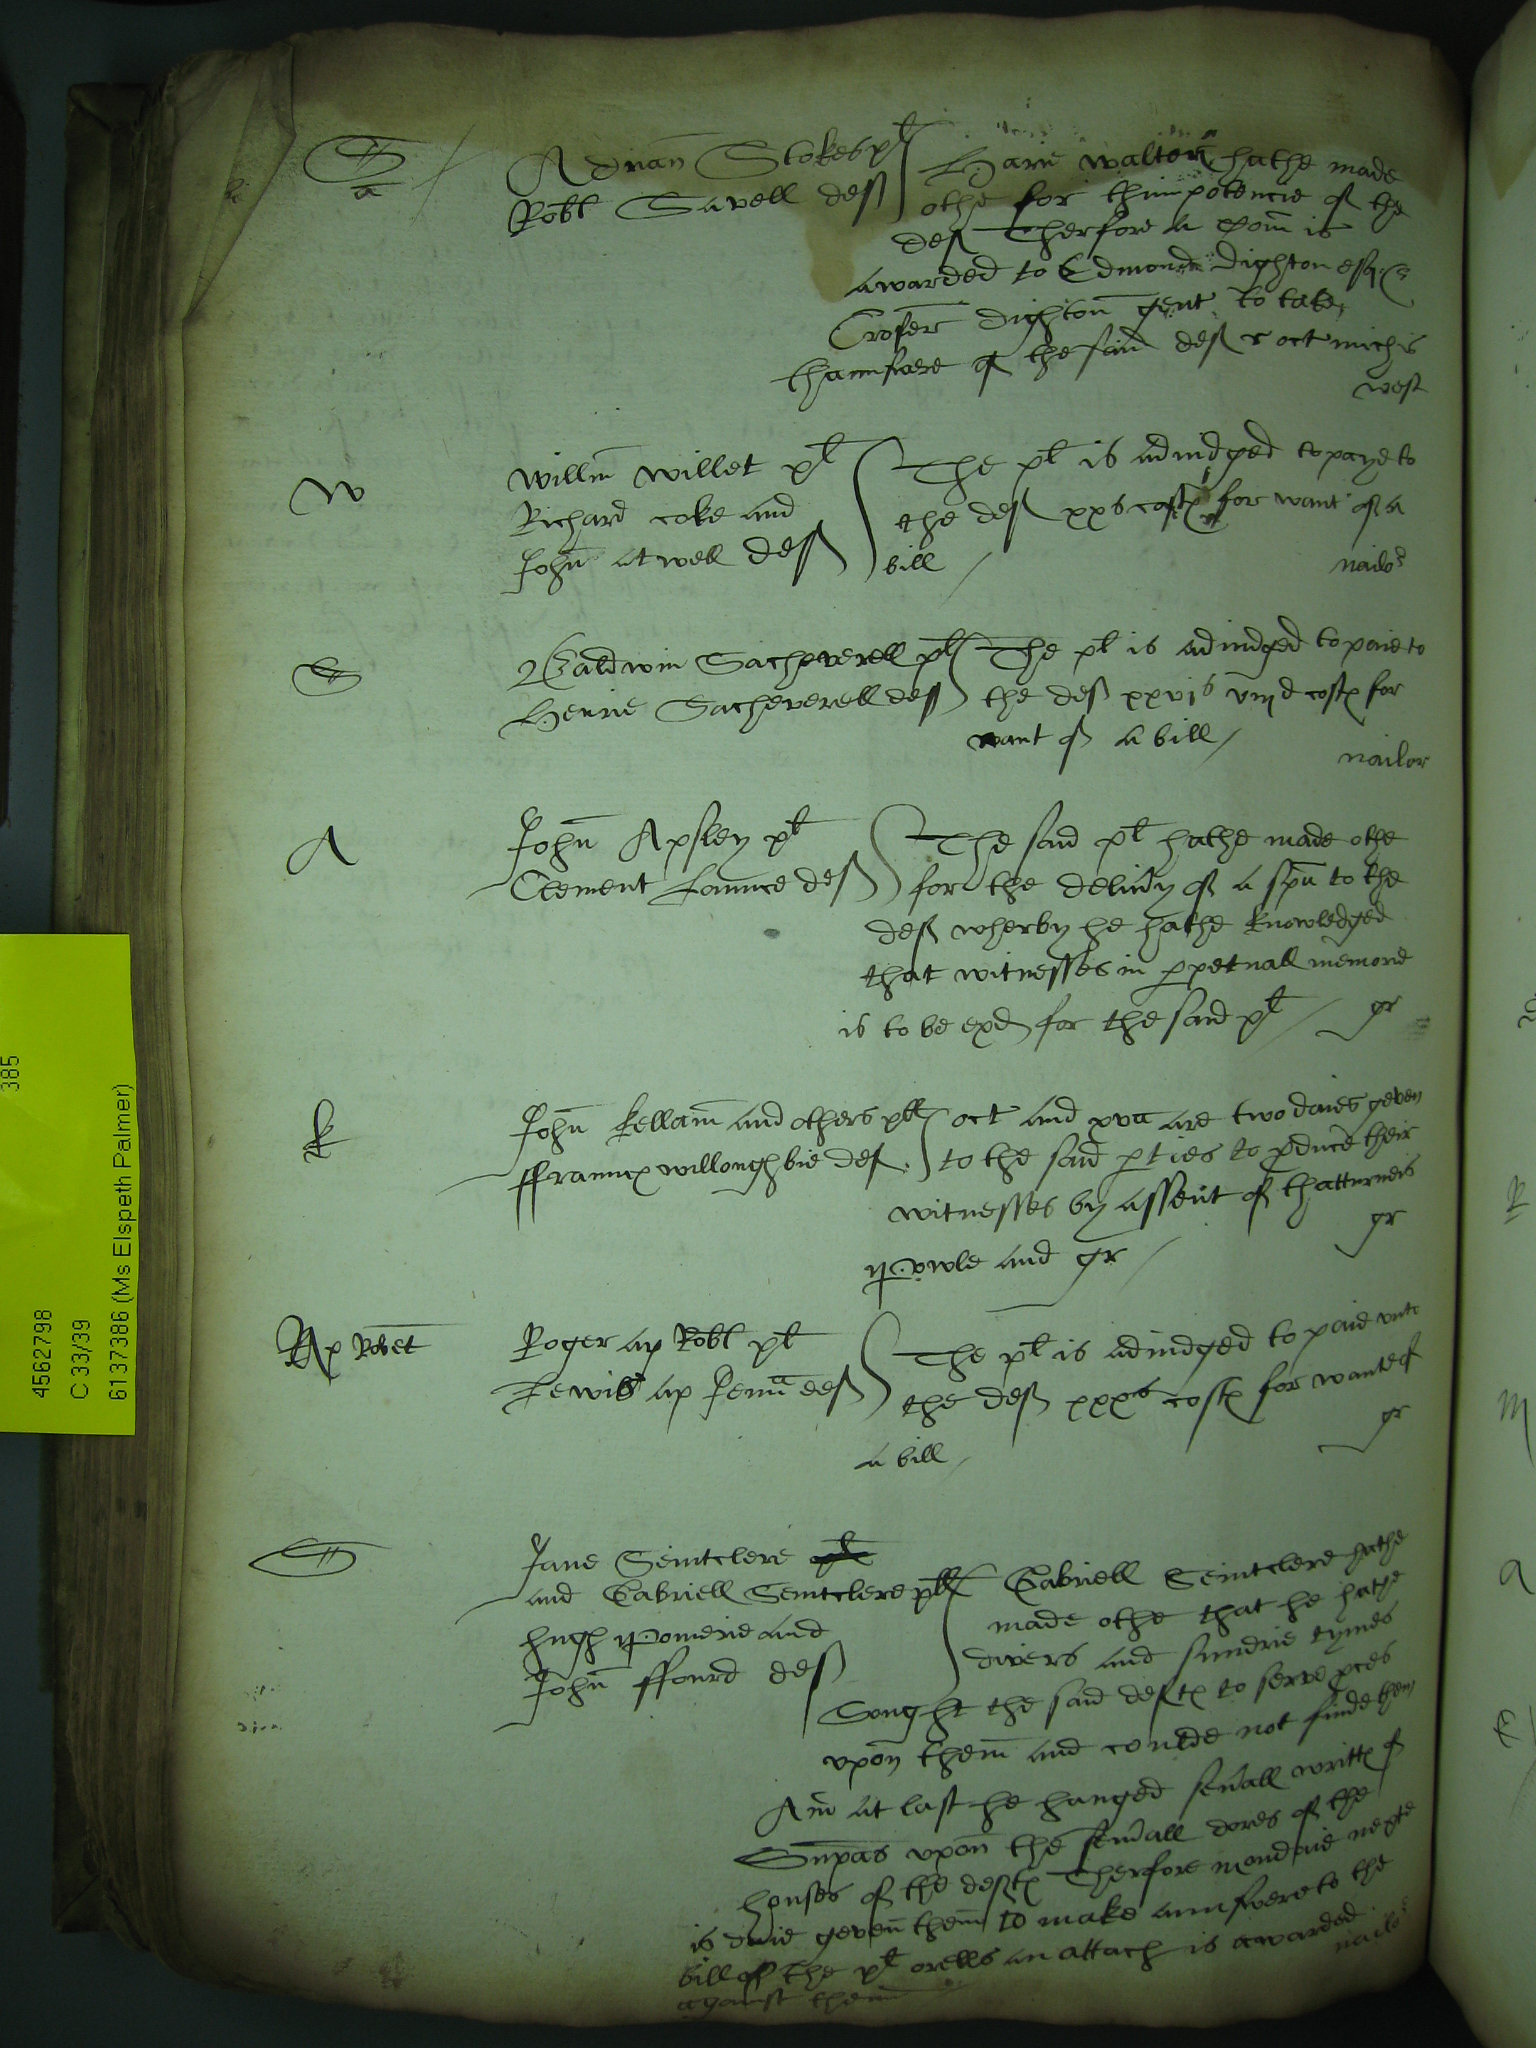 S
a
Adrian Stokes pl
Robt Savell def
Harie walton hathe made
othe for thimpotencie of the
def Therfore a Com is
awarded to Edmond dighton esq
Crofer dighton gent to take
thaunswere of the said def r oct michis
west
W
Willm Willet pl
Richard Coke and
John Atwell def
The pl is adiudged to paye to
the def xxs costs for want of a
bill
nailor
S
Baldwin Sacheverell pl
Henrie Sacheverell def
The pl is adiudged to paie to
the def xxvis viijd costs for
want of a bill
nailor
A
John Apsley pl
Clement Launce def
The said pl hathe made othe
for the delivy of a spa to the
def wherby he hathe knowledged
that witnesses in ppetuall memorie
is to be exd for the said pl
gr
K
John Kellam and others pll
ffraunc willoughbie def
oct and xva are two daies geven
to the said pties to pduce their
witnesses by assent of thatturneis
powle and gr
gr
Ap Robet
Roger ap Robt pl
Lewis ap Jeuan def
The pl is adiudged to paie unto
the def xxxs costs for want of
a bill
gr
S
Jane Seintclere
and Gabriell Seintclere pll
hugh Pomerie and
John fford def
Gabriell Seintclere hathe
made othe that he hathe
divers and sundrie tymes
Sought the said defts to serve pces
upon them and coulde not finde them
And at last he hanged sevall writts of
Supas upon the sevall dores of the
houses of the defts Therfore mondaie nexte
is daie geven them to make aunswere to the
bill of the pl orells an attach is awarded
against them
nailor
385
4562798
C 33/39
6137386 (Ms Elspeth Palmer)